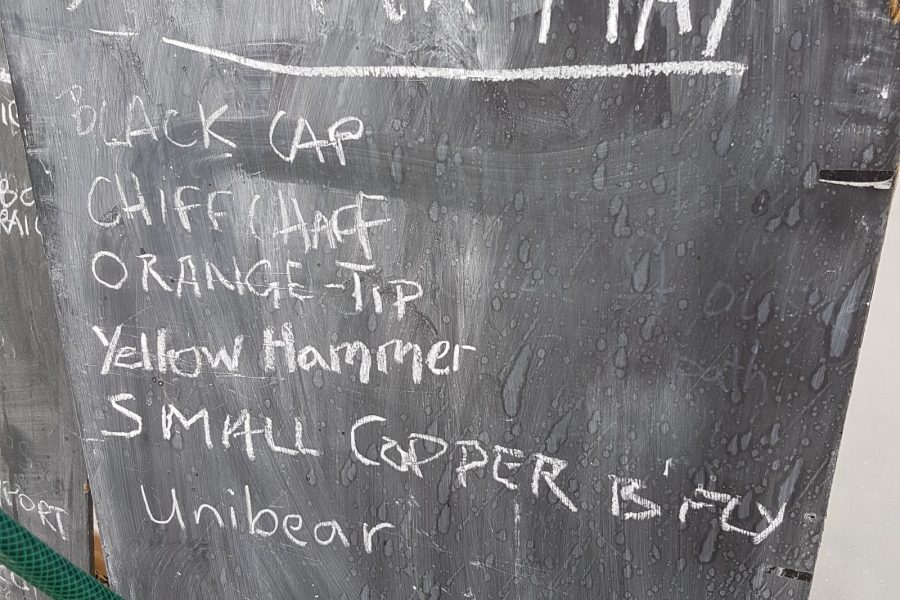 MAY
BLACK CAP
CHIFFCHAFF
ORANGE-TIP
Yellow Hammer
SMALL COPPER B'FLY
Unibear